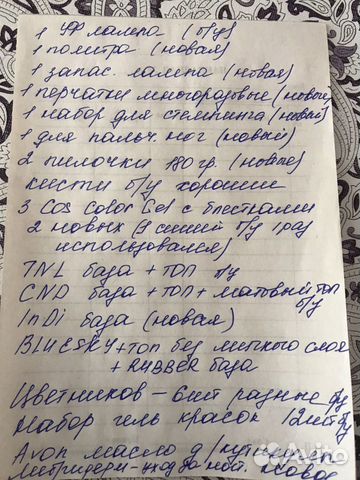 1 УФ лампа (б/у)
1 политра (новая)
1 запас. лампа (новая)
1 перчатки многоразовые (новые)
1 набор для стемпинга (новый)
1 для пальч. ног (новый)
2 пилочки 180 гр. (новые)
кисти б/у хорошие
3 Cos Color Gel с блестками
2 новых (1 синий б/у 1 раз
использовался)
TNL база + ТОП б/у
CND база + ТОП + матовый топ
б/у
InDi база (новая)
BLUESKY + топ без липкого слоя
+ RUBBER база
Цветников - 6 шт разные б/у
Набор гель красок 12 шт б/у
Avon масло д/кутикулы
новое
Avito